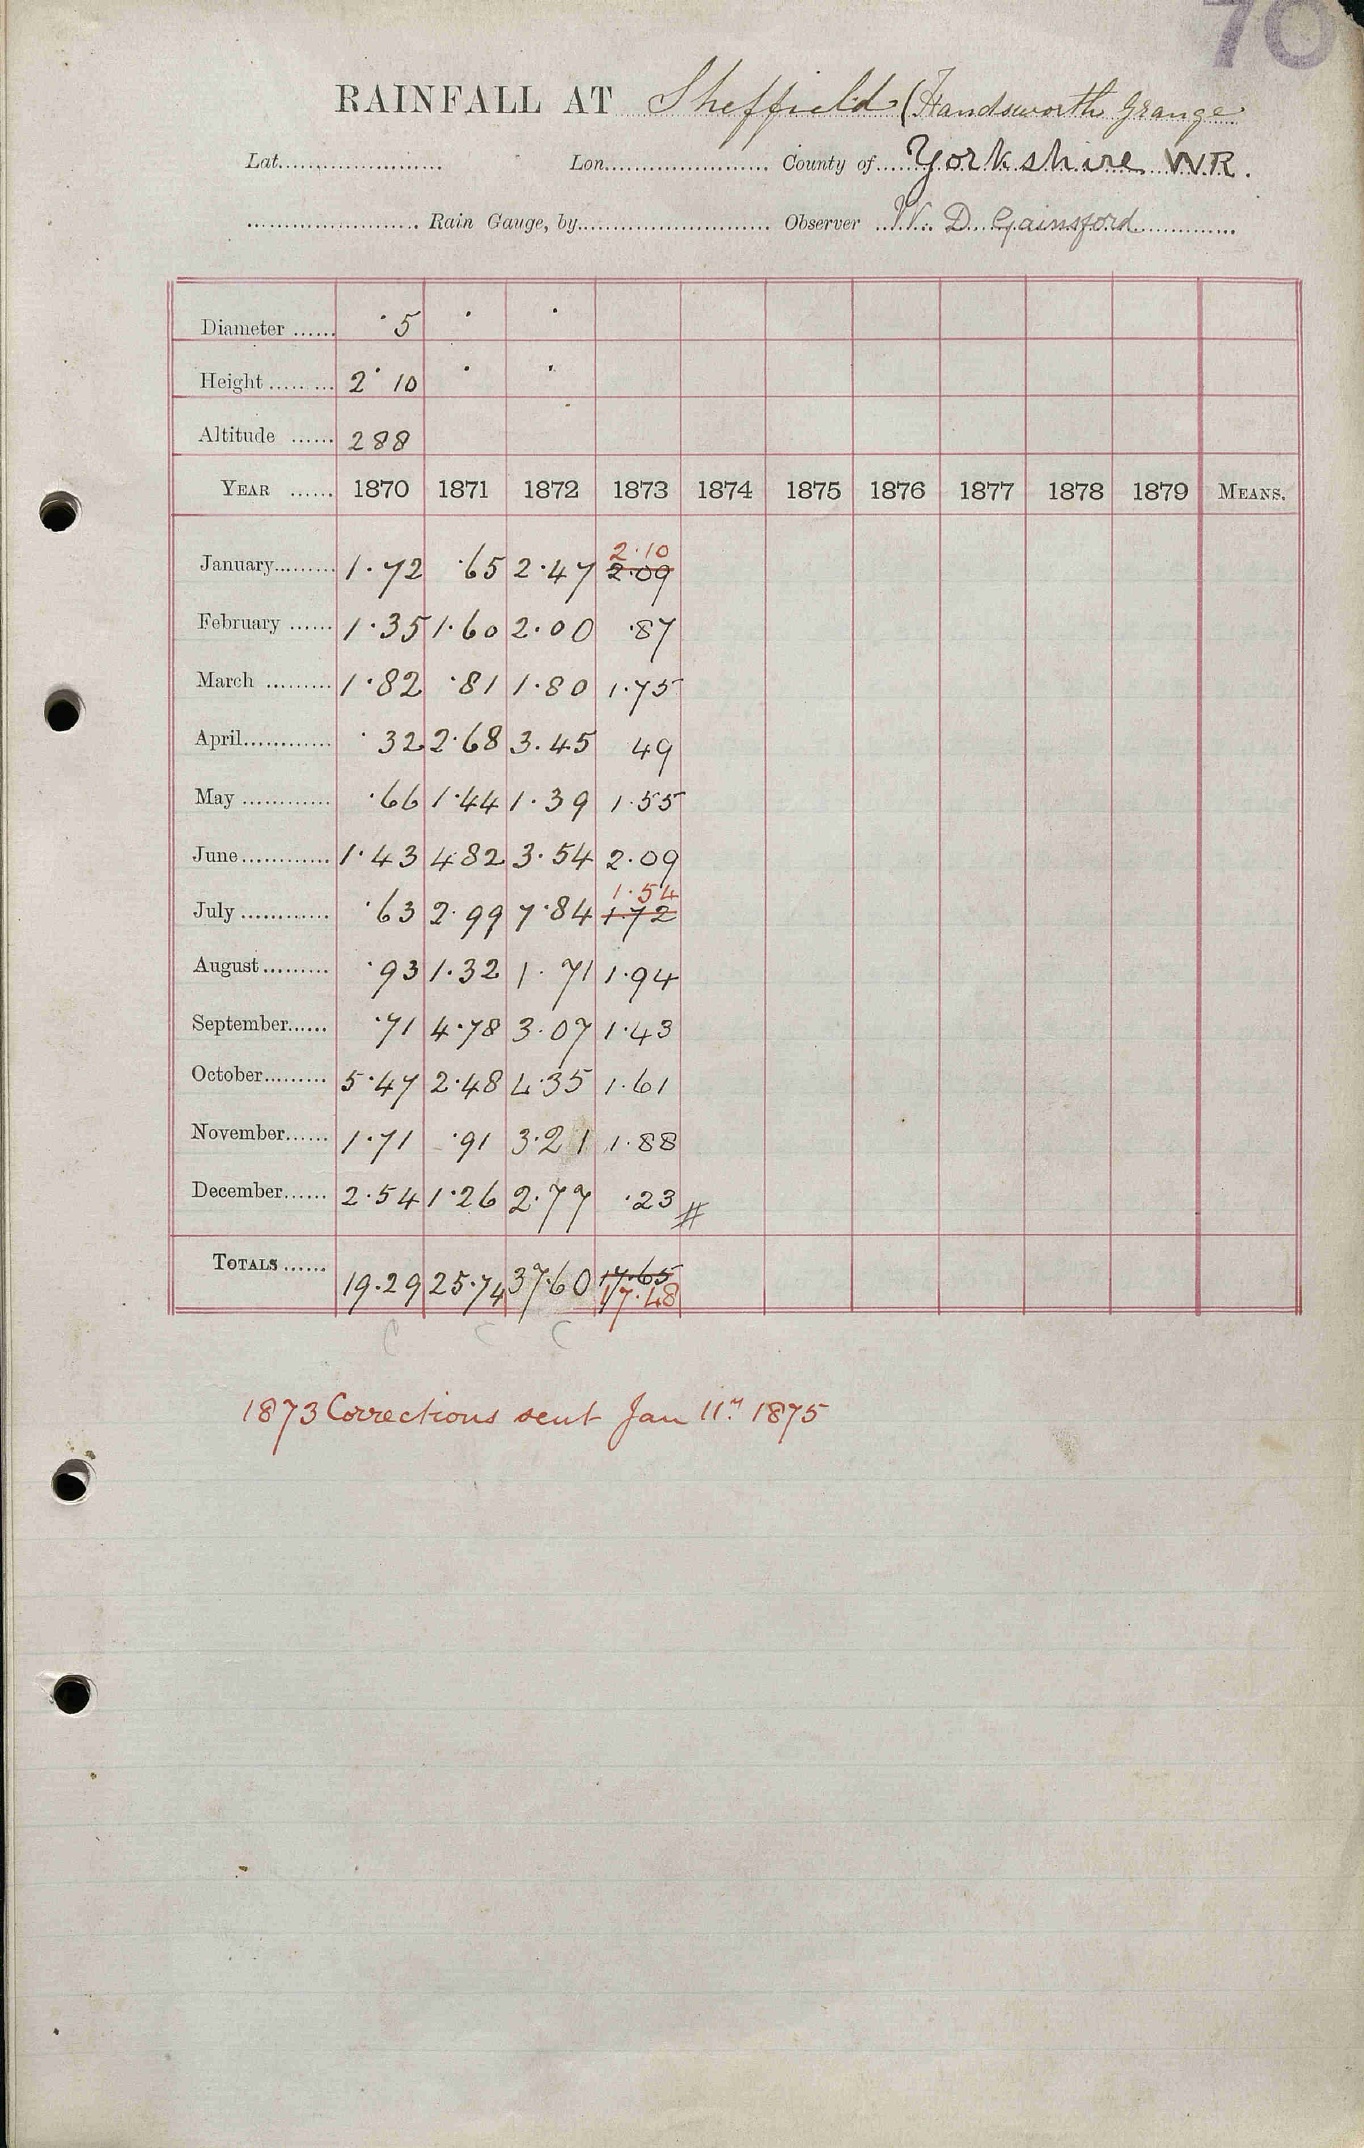 70
RAINFALL AT Sheffield (Handsworth Grange
Lat. Lon. County of Yorkshire W.R.
Rain Gauge, by Observer W. D. Gainsford
Diameter · 5 · ·
Height 2 · 10 · ·
Altitude 288
YEAR 1870 1871 1872 1873 1874 1875 1876 1877 1878 1879 MEANS.
2.10
January 1.72 .65 2.47 2.09
February 1.35 1.60 2.00 .87
March 1.82 .81 1.80 1.75
April .32 2.68 3.45 49
May .66 1.44 1.39 1.55
June 1.43 4.82 3.54 2.09
1.54
July .63 2.99 7.84 1.72
August .93 1.32 1.71 1.94
September .71 4.78 3.07 1.43
October 5.47 2.48 4.35 1.61
November 1.71 .91 3.21 1.88
December 2.54 1.26 2.77 .23 #
TOTALS 19.29 25.74 37.60 17.65
17.48
C C C
1873 Corrections sent Jan 11th 1875